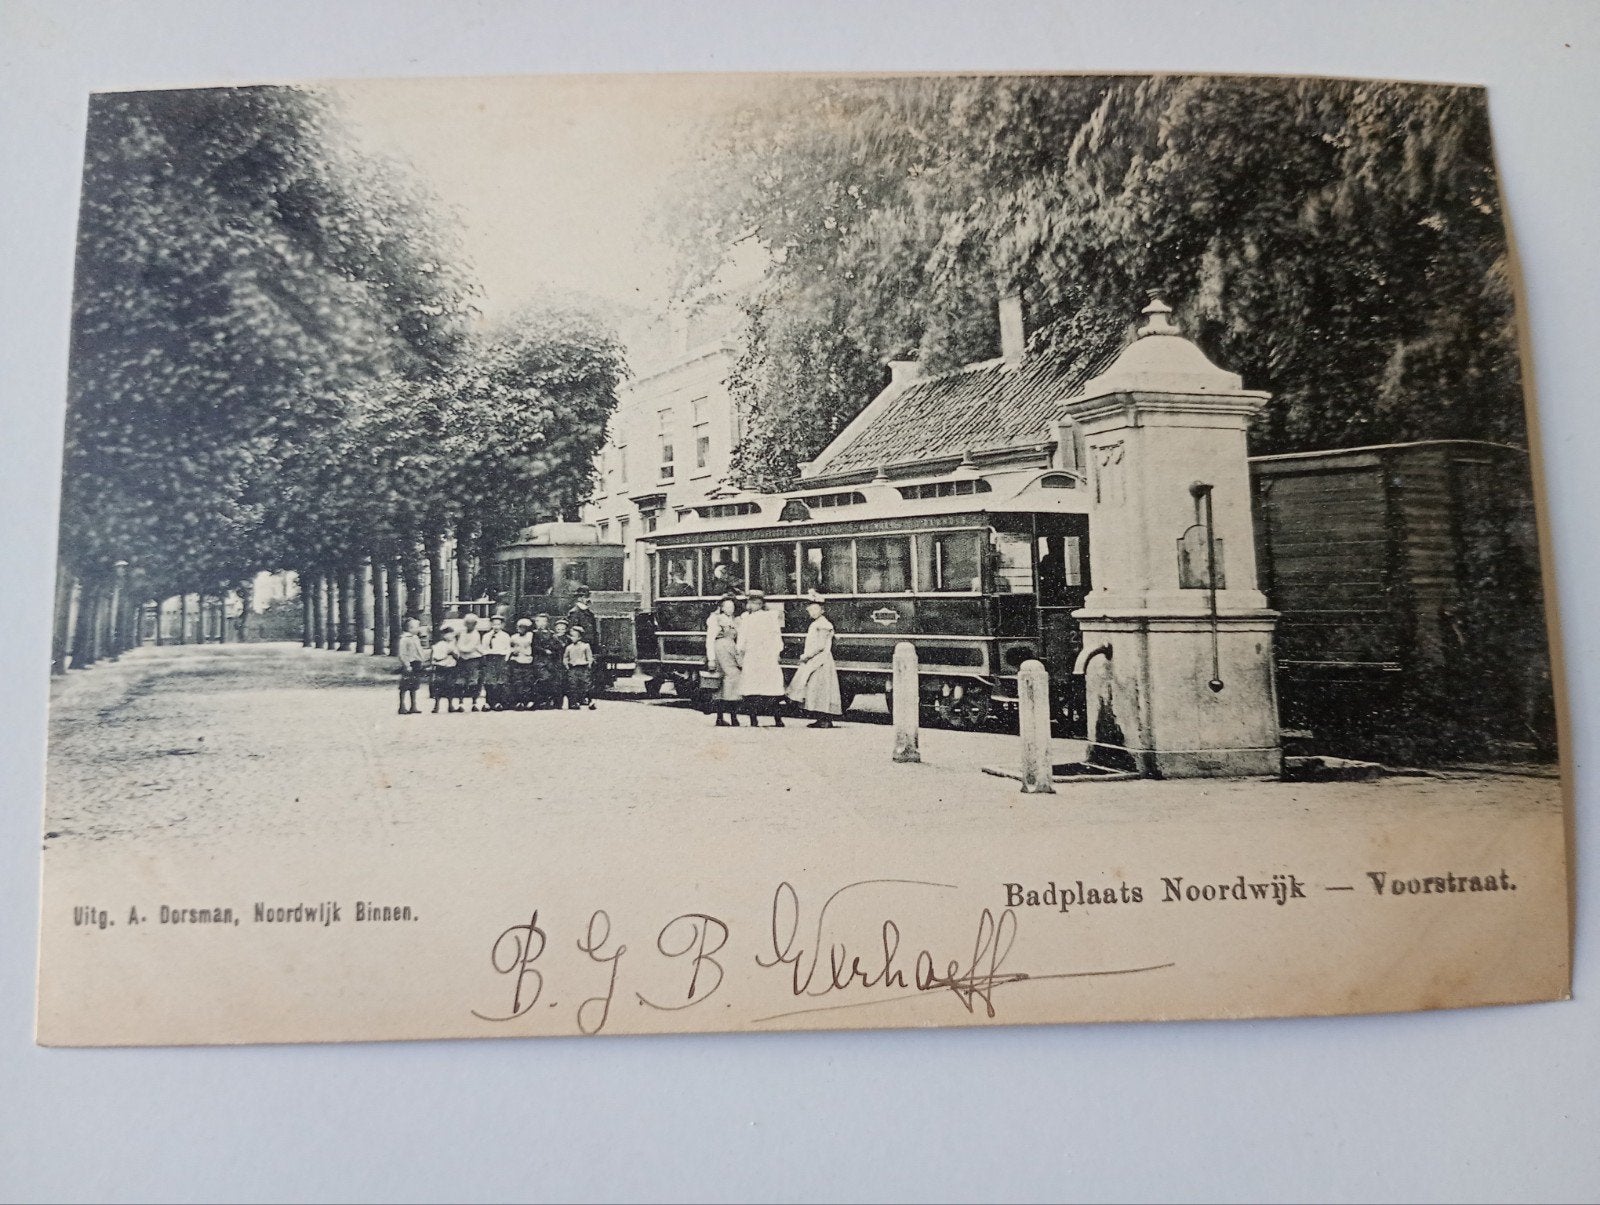 Badplaats Noordwijk — Voorstraat.
Uitg. A. Dorsman, Noordwijk Binnen.
B. G. B. Verhoeff